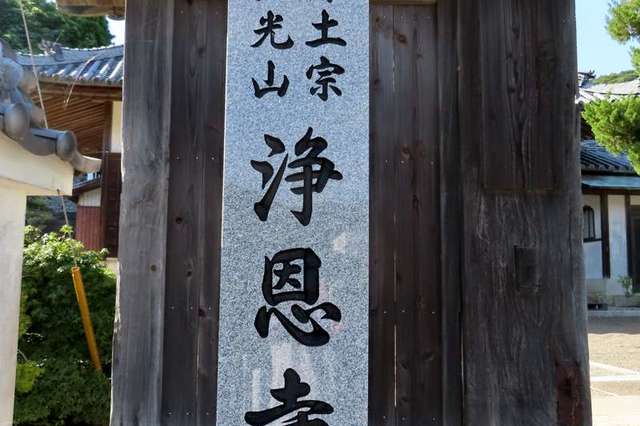 土宗
光山
浄恩寺